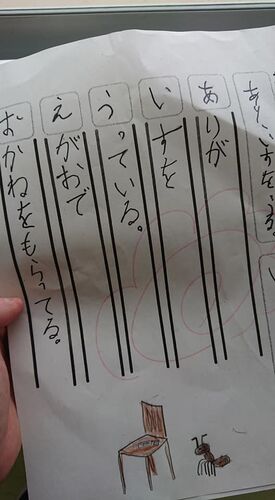 あり、いすをうる。
ありが
いすを
うっている。
えがおで
おかねをもらってる。